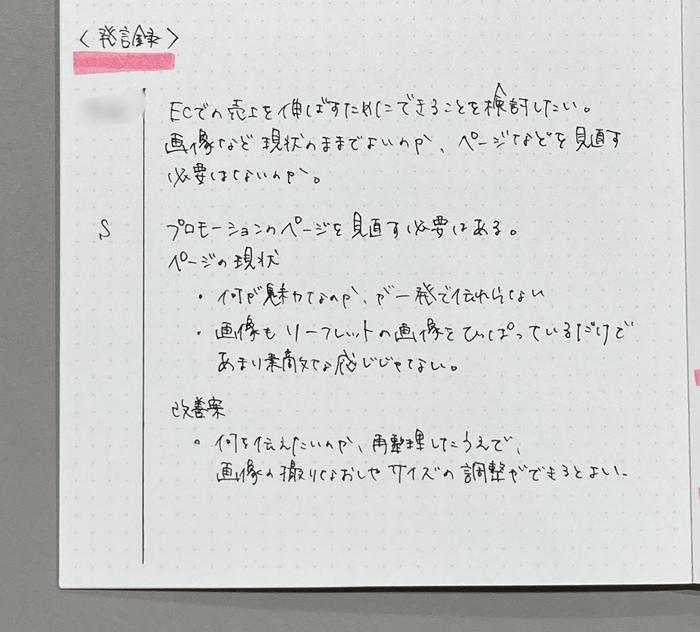 〈発言録〉
ECでの売上を伸ばすためにできることを検討したい。
画像など現状のままでよいのか、ページなどを見直す
必要はないのか。
S
プロモーションのページを見直す必要はある。
ページの現状
・何が魅力なのか、が一発で伝わらない
・画像もリーフレットの画像をひっぱっているだけで
あまり素敵な感じじゃない。
改善案
・何を伝えたいのか、再整理したうえで、
画像の撮りなおしやサイズの調整ができるとよい。